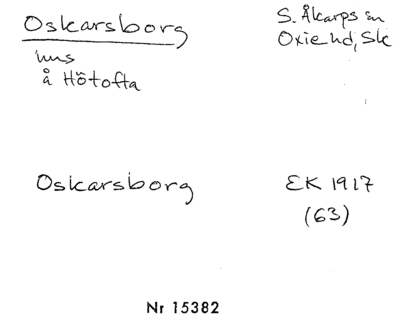 Oskarsborg
S. Åkarps sn
Oxie hd, Sk
hus
å Hötofta
Oskarsborg
EK 1917
(63)
Nr 15382